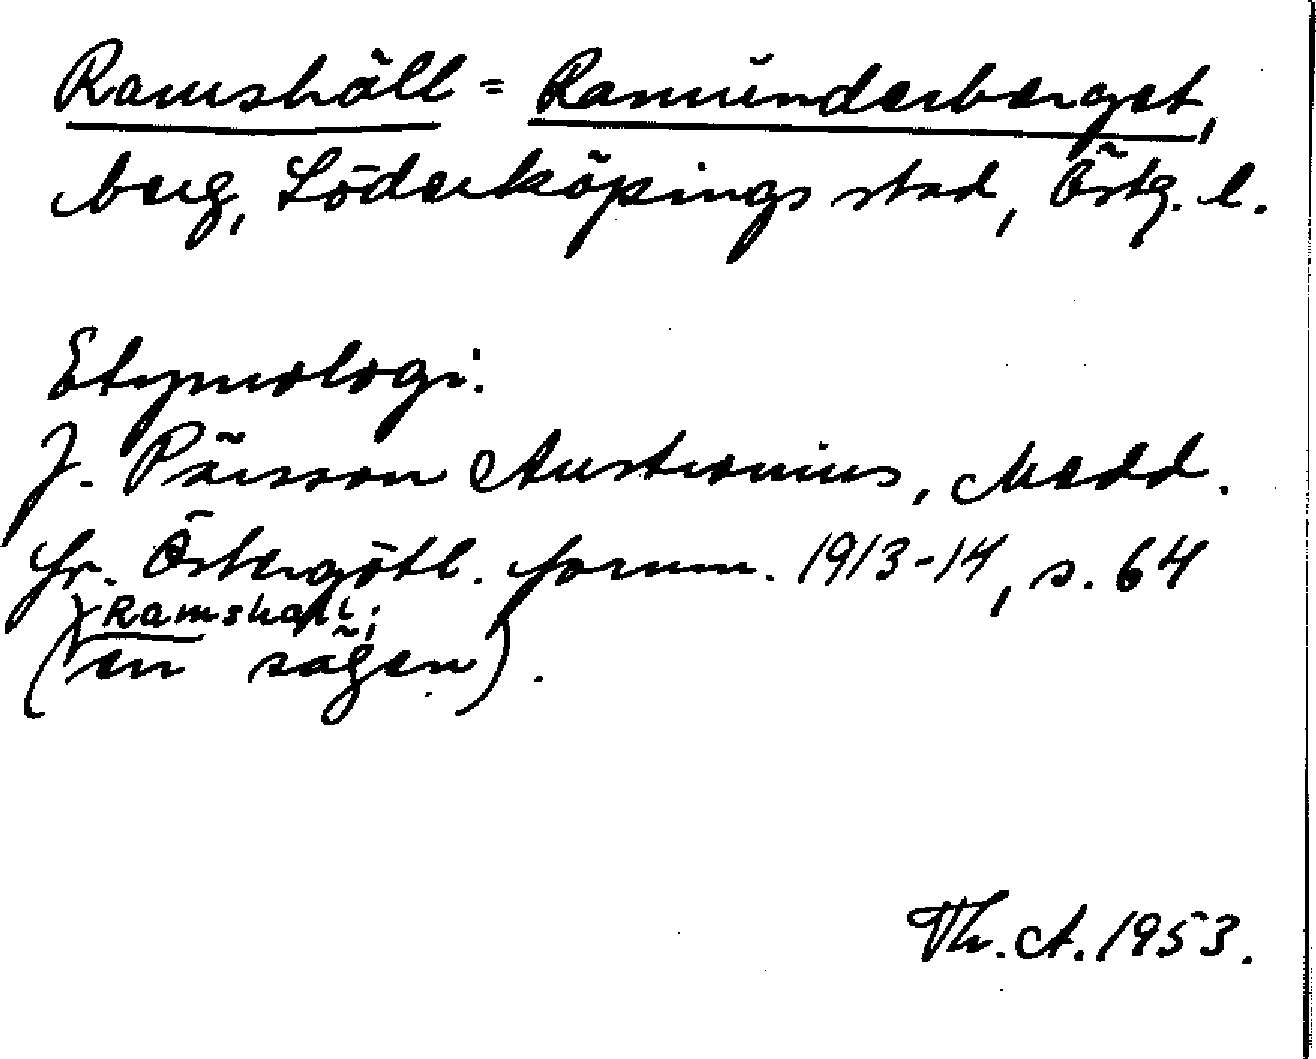 Ramshäll = Ramunderberget,
berg, Söderköpings stad, Östg. l.
Etymologi:
J. Pärsson Austronius, Medd.
fr. Östergötl. fornm. 1913-14, s. 64
Ramshäll;
(en sägen).
Th. A. 1953.